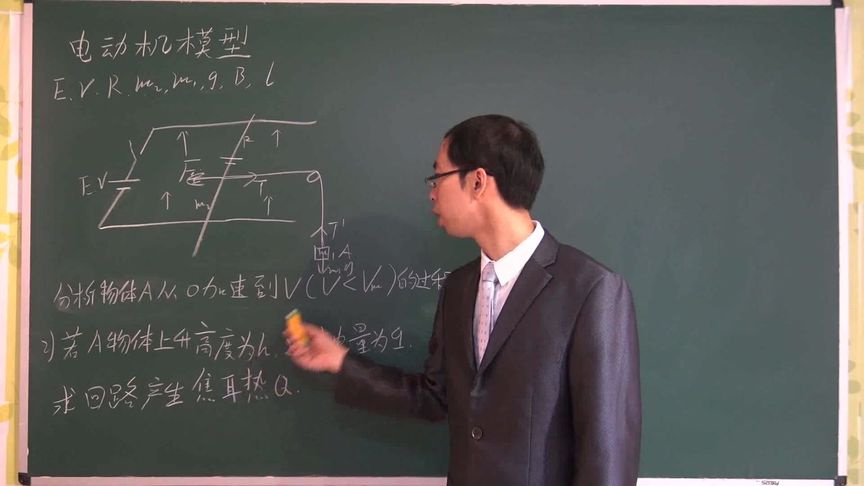 电动机模型
E, r, R, m₂, m₁, g, B, l
R
E r
F安
T
m₂
T'
m₁ A
m₁g
分析物体A从0加速到V(V<Vm)的过程
2)若A物体上升高度为h, 电量为q.
求回路产生焦耳热Q.